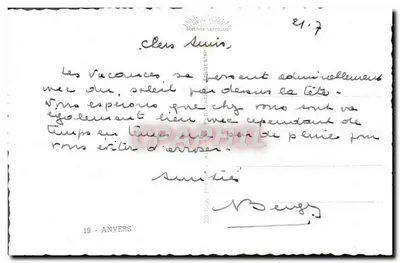 21.7
Chers Amis,
Les vacances se passent admirablement
avec du soleil par dessus la tête.
Nous espérons que chez vous tout va
également bien avec cependant de
temps en temps un peu de pluie pour
vous éviter d'arroser.
Amitiés
19 - ANVERS